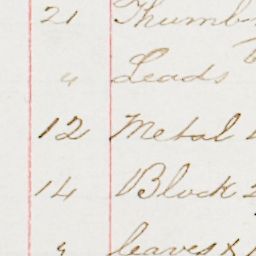 21 Thumb-
" Leads
12 Metal
14 Block 2
" leaves &